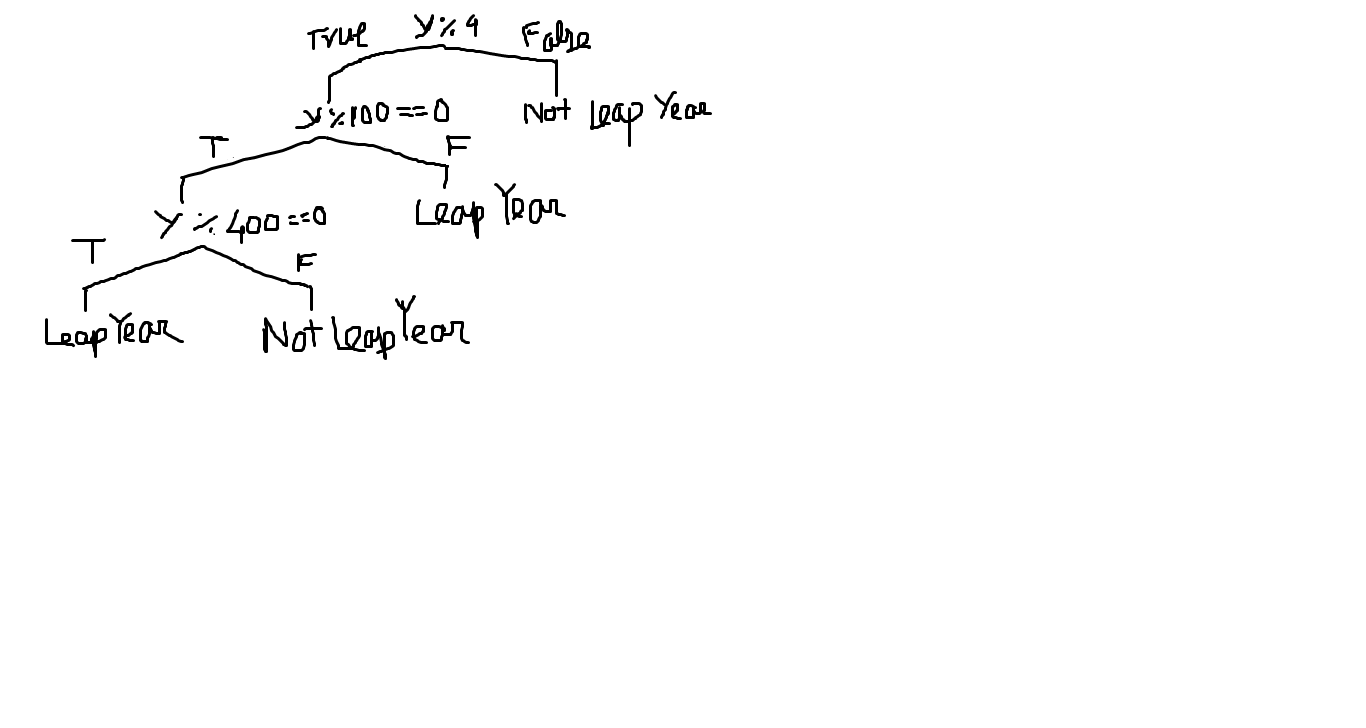 True Y%4 False
Y%100==0 Not Leap Year
T F
Y%400==0 Leap Year
T F
Leap Year Not Leap Year